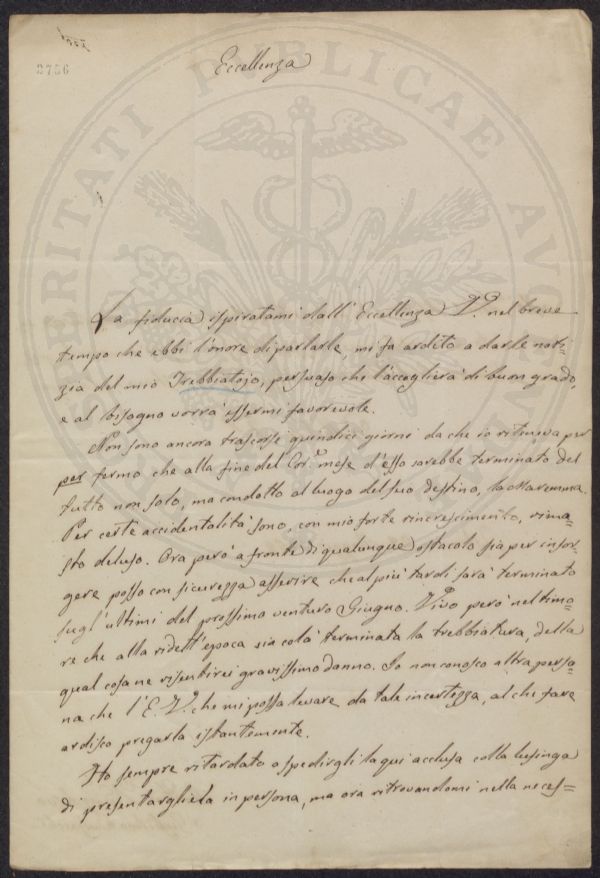 3756
Eccellenza
La fiducia ispiratami dall' Eccellenza V. nel breve
tempo che ebbi l'onore di parlarle, mi fa ardito a darle noti=
zia del mio Trebbiatojo, persuaso che l'accoglierà di buon grado,
e al bisogno vorrà essermi favorevole.
Non sono ancora trascorsi quindici giorni da che io riteneva per
per fermo che alla fine del Cor.e mese d'esso sarebbe terminato del
tutto non solo, ma condotto al luogo del suo destino, la Maremma.
Per certe accidentalità sono, con mio forte rincrescimento, rima=
sto deluso. Ora però a fronte di qualunque ostacolo sia per insor=
gere posso con sicurezza asserire che al più tardi sarà terminato
sugl'ultimi del prossimo venturo Giugno. Vivo però nel timo=
re che alla ridett'epoca sia colà terminata la trebbiatura, della
qual cosa ne risentirei gravissimo danno. Io non conosco altra perso=
na che l'E. V. che mi possa levare da tale incertezza, al che fare
ardisco pregarla istantemente.
Ho sempre ritardato a spedirgli la qui acclusa colla lusinga
di presentargliela in persona, ma ora ritrovandomi nella neces=
VERITATI PUBLICAE